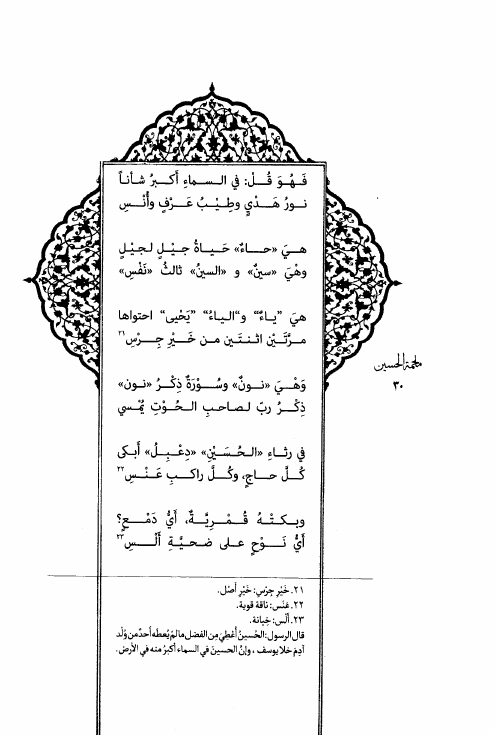 فَـهُـوَ قُـلْ: في الـسماءِ أَكـبرُ شأناً
نـورُ هَـدْيٍ وطِـيْـبُ عَـرْفٍ وأُنْـسِ
هـيَ «حـاءٌ» حَـيـاةُ جـيْـلٍ لـجيْلٍ
وهْيَ «سينٌ» و «السينُ» ثالثُ «نَفْسِ»
هيَ "يـاءٌ" و"الـياءُ" "يَحْيى" احتواها
مـرَّتَـيْن اثـنـتَين مـن خَـيْرِ جِـرْسِ٢١
وَهْـيَ «نـونٌ» وسُـوْرَةٌ ذِكْـرُ «نون»
ذِكْـرُ ربّ لـصاحبِ الـحُوْتِ يُمْسي
في رثـاءِ «الـحُسَيْنِ» «دِعْـبِلُ» أَبكى
كُـلَّ حـاجٍ، وكُـلَّ راكـبِ عَـنْـسِ٢٢
وبـكـتْـهُ قُـمْـرِيَّـةٌ، أَيُّ دَمْـعٍ؟
أَيُّ نَـوْحٍ على ضـحـيَّـةِ أَلْـسِ٢٣
ملحمة الحسين
٣٠
٢١. خَيْرِ جِرْسِ: خَيْرِ أصْل.
٢٢. عَنْس: ناقة قوية.
٢٣. ألْس: خِيانة.
قال الرسول: الحُسينُ أُعْطِيَ مِن الفضل مالم يُعطه أحدٌ من وُلْد
آدم خلا يوسف ، وإنّ الحسينَ في السماء أكبرُ منه في الأرض.